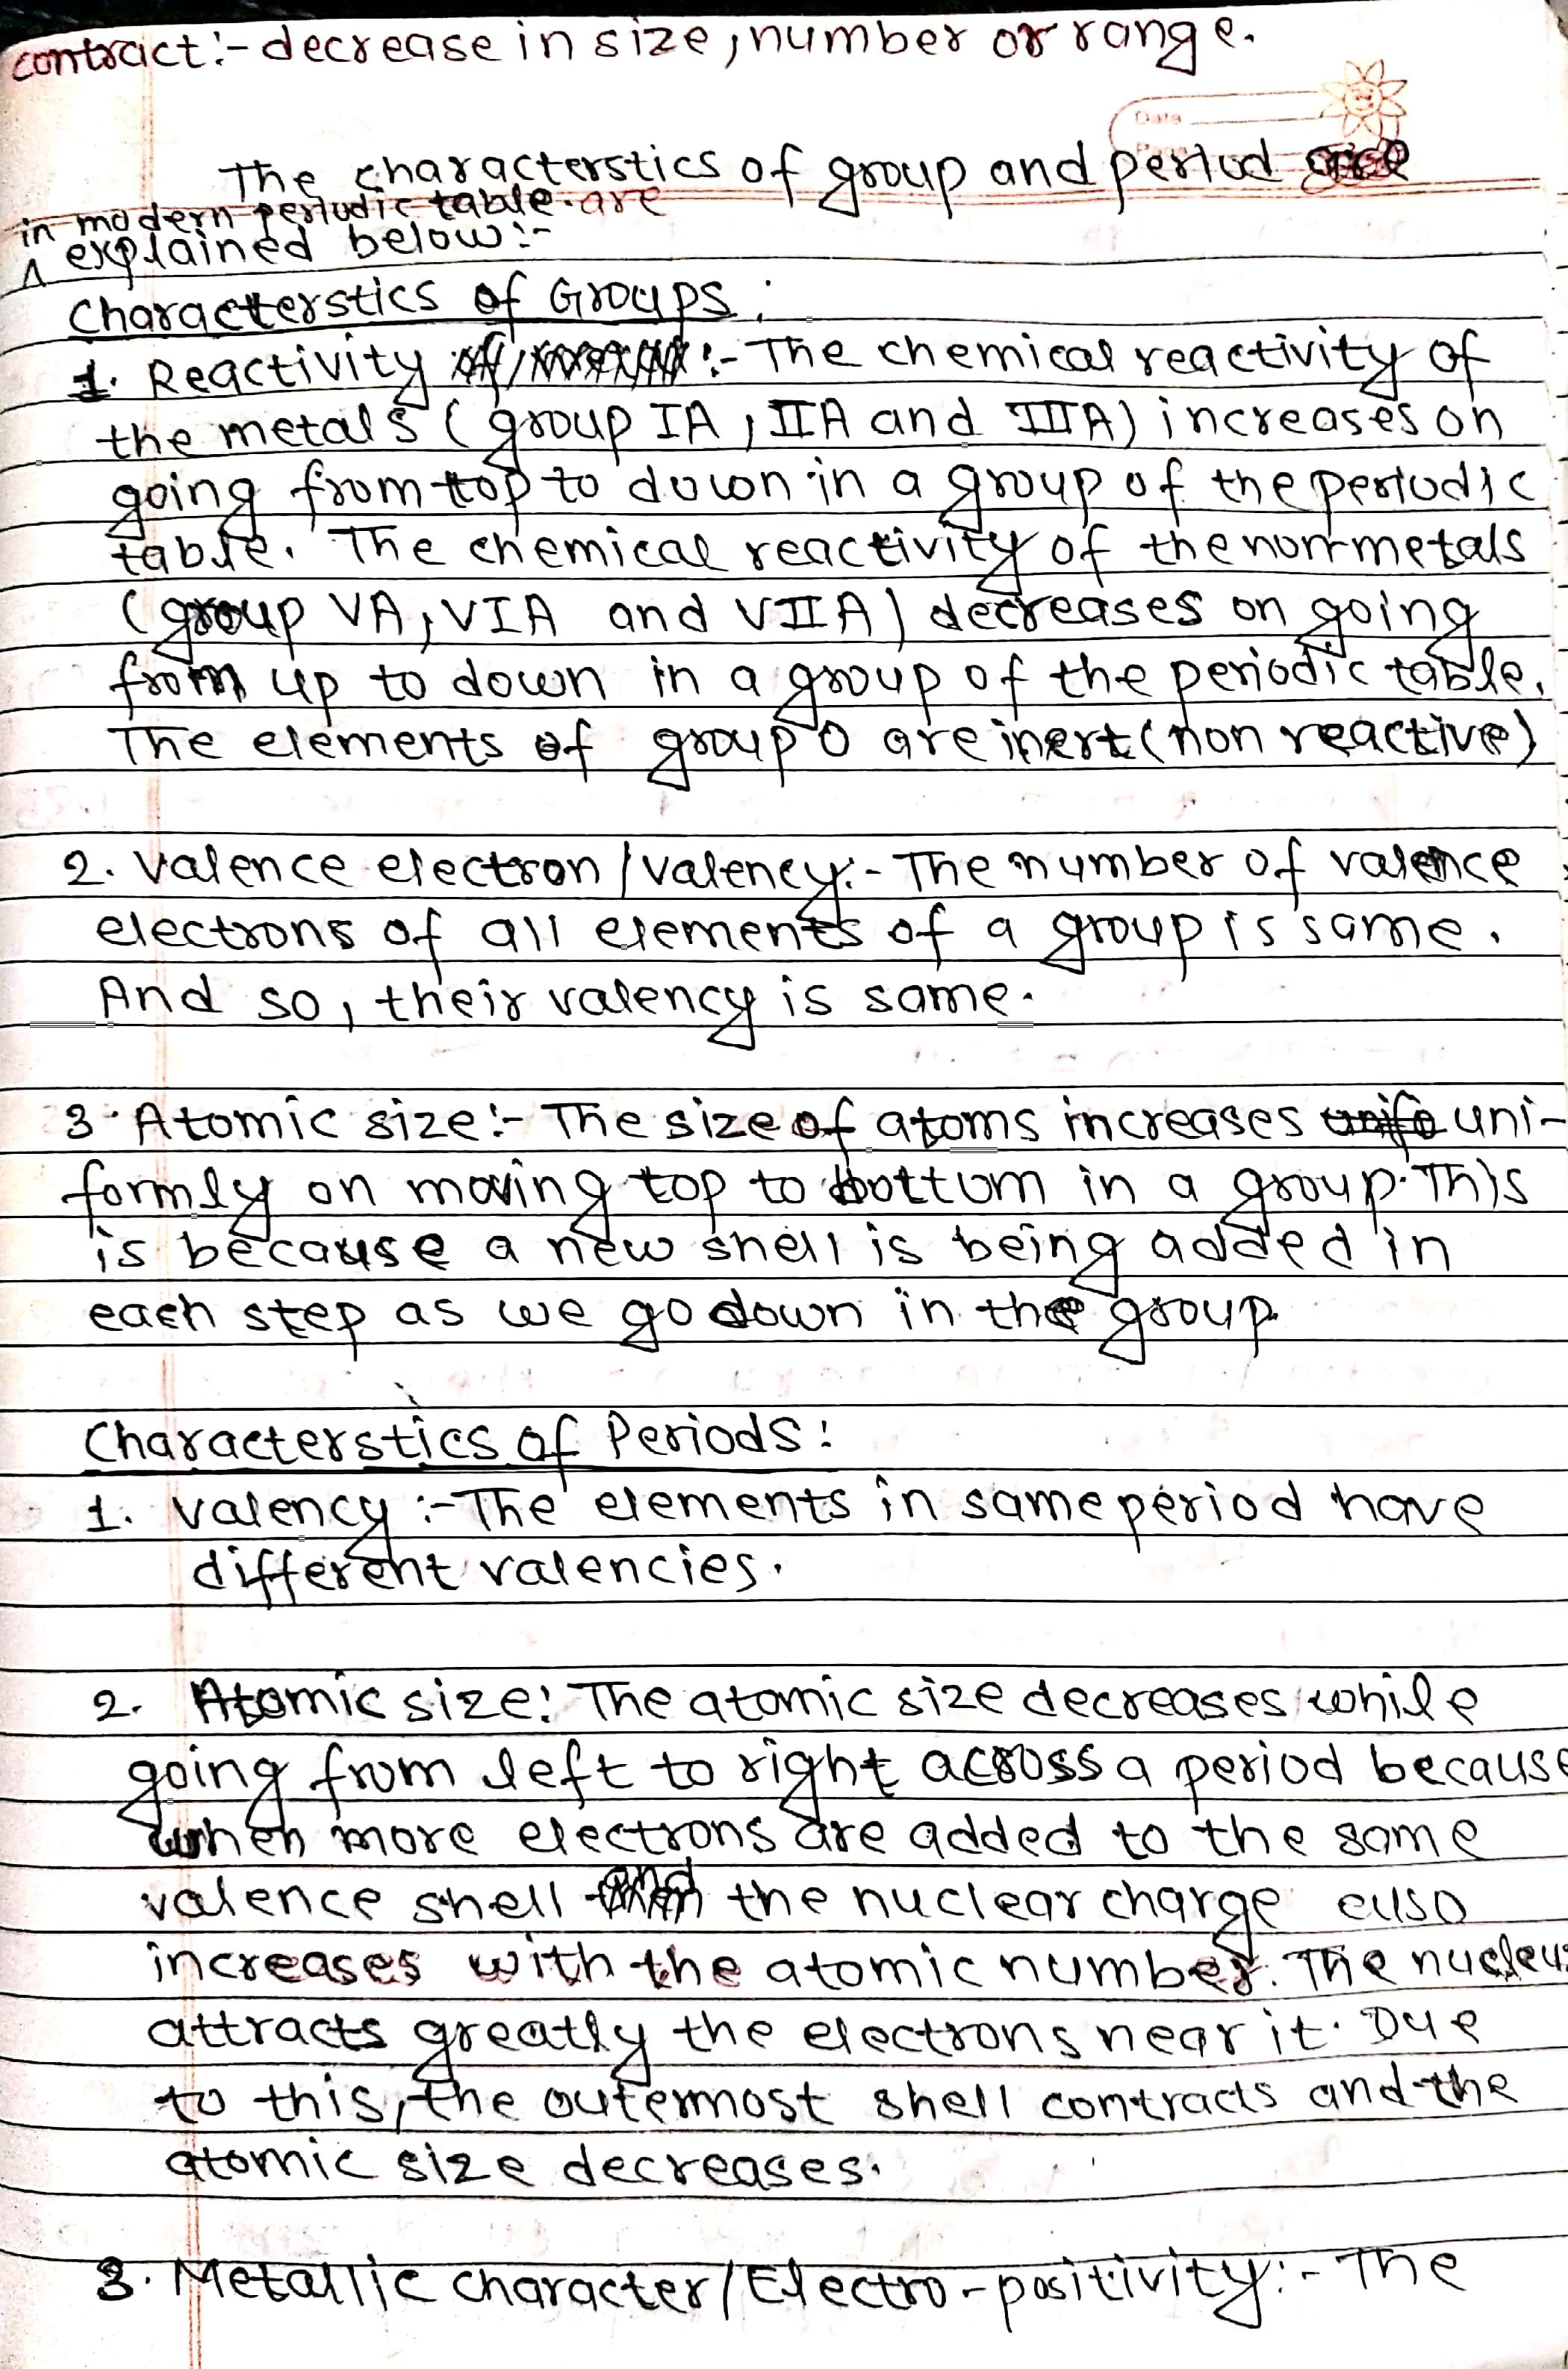 contract:- decrease in size, number or range.
Data
The characterstics of group and period
in modern periodic table are
explained below:-
Characterstics of Groups:
1. Reactivity :- The chemical reactivity of
the metals (group IA, IIA and IIIA) increases on
going from top to down in a group of the periodic
table. The chemical reactivity of the non-metals
(group VA, VIA and VIIA) decreases on going
from up to down in a group of the periodic table.
The elements of group 0 are inert (non reactive)
2. Valence electron / valency:- The number of valence
electrons of all elements of a group is same.
And so, their valency is same.
3. Atomic size:- The size of atoms increases uni-
formly on moving top to bottom in a group. This
is because a new shell is being added in
each step as we go down in the group.
Characterstics of Periods:
1. Valency :- The elements in same period have
different valencies.
2. Atomic size: The atomic size decreases while
going from left to right across a period because
when more electrons are added to the same
valence shell and the nuclear charge also
increases with the atomic number. The nucleus
attracts greatly the electrons near it. Due
to this, the outermost shell contracts and the
atomic size decreases.
3. Metallic character / Electro-positivity:- The